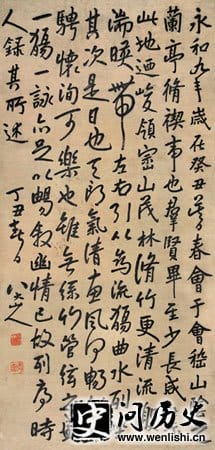 永和九年歲在癸丑暮春會于會稽山陰
蘭亭脩禊事也群賢畢至少長咸
此地迺峻領崇山茂林脩竹更清流
湍暎帶左右引以為流觴曲水列
其次是日也天朗氣清惠風和暢
騁懷洵可樂也雖無絲竹管弦之
一觴一詠亦足以暢敘幽情已故列序時
人錄其所述
丁丑春日
八大山人
史问历史
www.wenlishi.cn